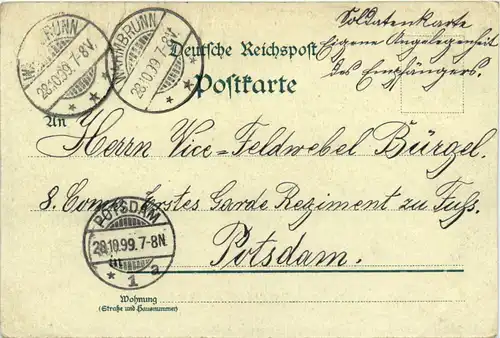 Soldatenkarte
Eigene Angelegenheit
des Empfängers.
WARMBRUNN
28.10.99.7-8V.
WARMBRUNN
28.10.99.7-8V.
Deutsche Reichspost
Postkarte
An
Herrn Vice-Feldwebel Bürgel.
8. Comp. Erstes Garde Regiment zu Fuss.
POTSDAM
28.10.99.7-8N.
1 a
in
Potsdam.
Wohnung
(Straße und Hausnummer)